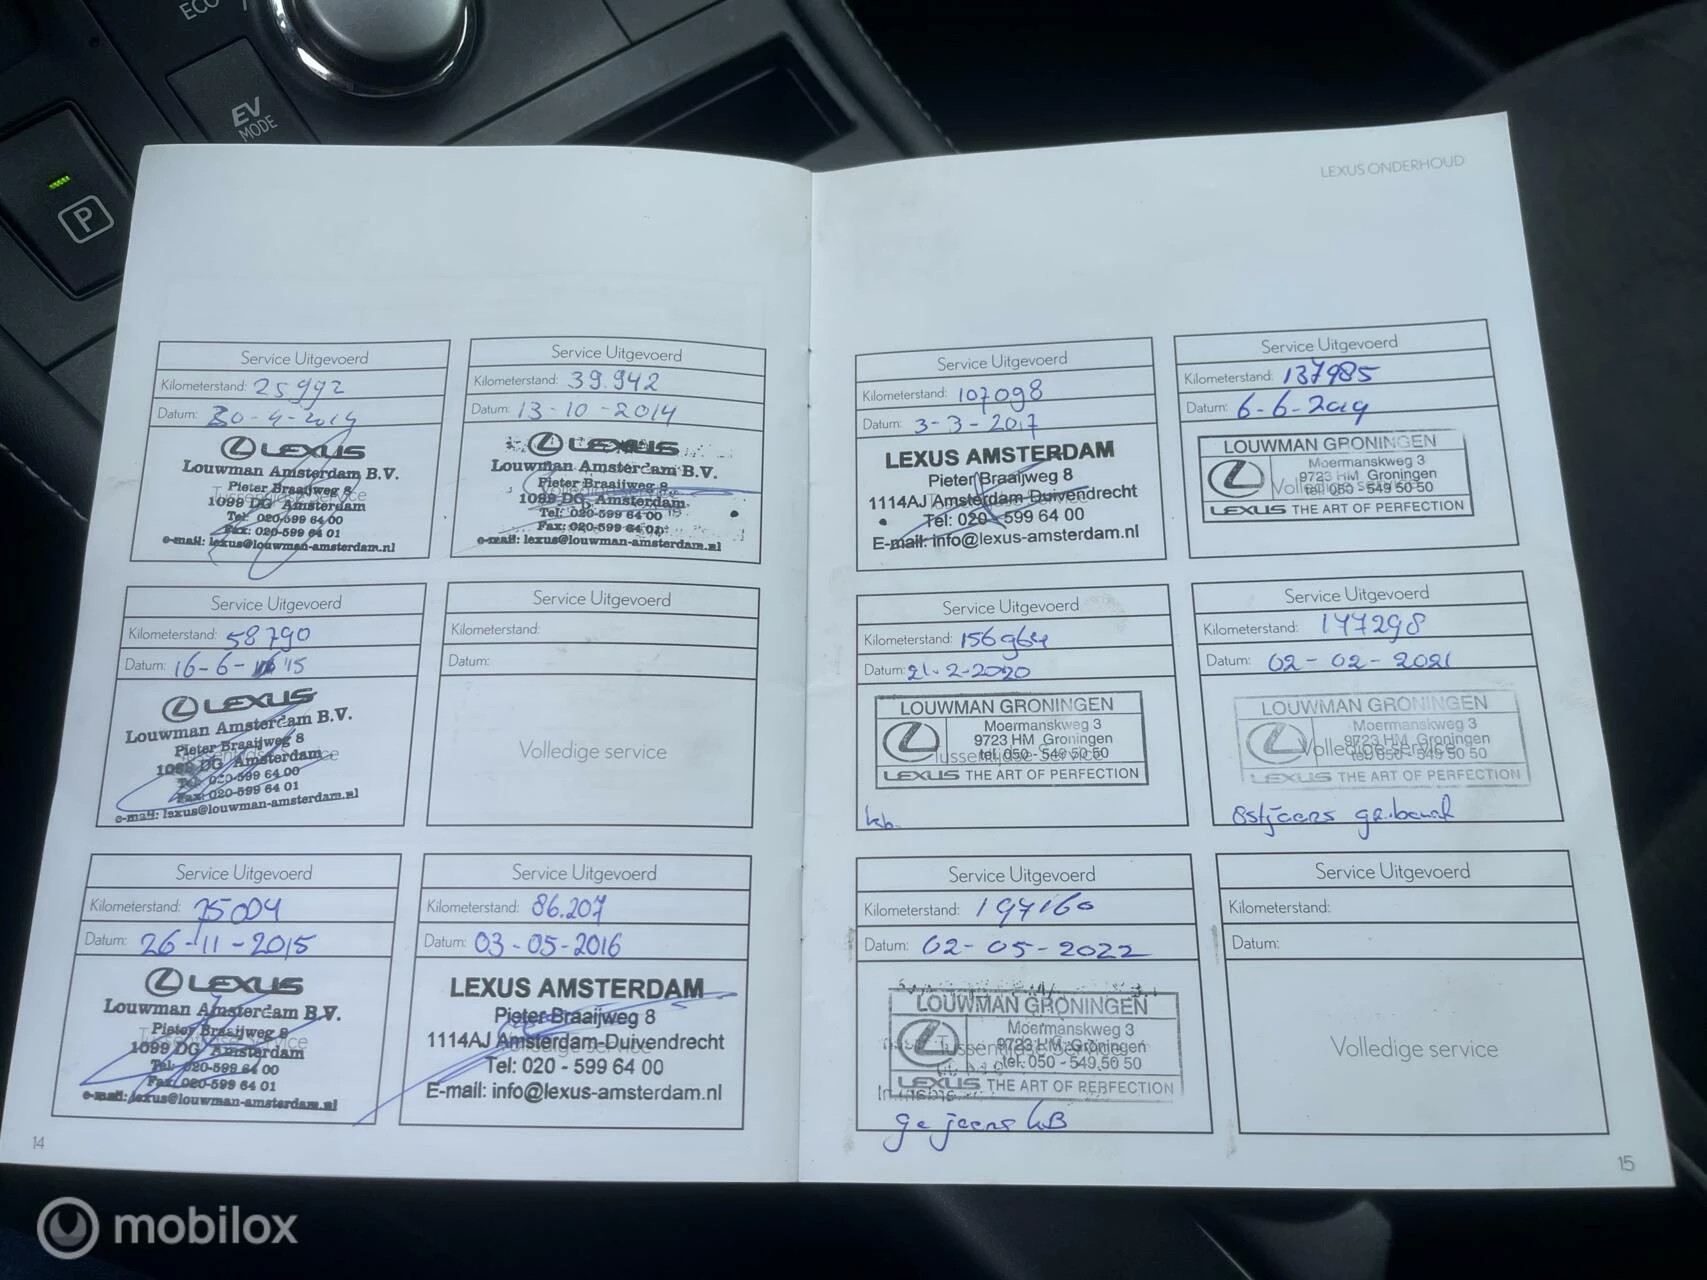 ECO
EV
MODE
P
LEXUS ONDERHOUD
Service Uitgevoerd
Kilometerstand: 25992
Datum: 30-4-2014
LEXUS
Louwman Amsterdam B.V.
Pieter Braaijweg 8
1099 DG Amsterdam
Tel: 020-599 64 00
Fax: 020-599 64 01
e-mail: lexus@louwman-amsterdam.nl
Service Uitgevoerd
Kilometerstand: 39.942
Datum: 13-10-2014
LEXUS
Louwman Amsterdam B.V.
Pieter Braaijweg 8
1099 DG Amsterdam
Tel: 020-599 64 00
Fax: 020-599 64 01
e-mail: lexus@louwman-amsterdam.nl
Service Uitgevoerd
Kilometerstand: 58790
Datum: 16-6-'15
LEXUS
Louwman Amsterdam B.V.
Pieter Braaijweg 8
1099 DG Amsterdam
Tel: 020-599 64 00
Fax: 020-599 64 01
e-mail: lexus@louwman-amsterdam.nl
Service Uitgevoerd
Kilometerstand:
Datum:
Volledige service
Service Uitgevoerd
Kilometerstand: 75004
Datum: 26-11-2015
LEXUS
Louwman Amsterdam B.V.
Pieter Braaijweg 8
1099 DG Amsterdam
Tel: 020-599 64 00
Fax: 020-599 64 01
e-mail: lexus@louwman-amsterdam.nl
Service Uitgevoerd
Kilometerstand: 86.207
Datum: 03-05-2016
LEXUS AMSTERDAM
Pieter Braaijweg 8
1114AJ Amsterdam-Duivendrecht
Tel: 020 - 599 64 00
E-mail: info@lexus-amsterdam.nl
14
Service Uitgevoerd
Kilometerstand: 107098
Datum: 3-3-2017
LEXUS AMSTERDAM
Pieter Braaijweg 8
1114AJ Amsterdam-Duivendrecht
Tel: 020 - 599 64 00
E-mail: info@lexus-amsterdam.nl
Service Uitgevoerd
Kilometerstand: 137985
Datum: 6-6-2019
LOUWMAN GRONINGEN
Moermanskweg 3
9723 HM Groningen
Volledige service
tel. 050 - 549 50 50
LEXUS THE ART OF PERFECTION
Service Uitgevoerd
Kilometerstand: 156964
Datum: 21-2-2020
LOUWMAN GRONINGEN
Moermanskweg 3
9723 HM Groningen
Tussentijdse Service
tel. 050 - 549 50 50
LEXUS THE ART OF PERFECTION
kb.
Service Uitgevoerd
Kilometerstand: 177298
Datum: 02-02-2021
LOUWMAN GRONINGEN
Moermanskweg 3
9723 HM Groningen
Volledige service
tel. 050 - 549 50 50
LEXUS THE ART OF PERFECTION
Service Uitgevoerd
Kilometerstand: 197160
Datum: 02-05-2022
LOUWMAN GRONINGEN
Moermanskweg 3
9723 HM Groningen
Tussentijdse Service
tel. 050 - 549 50 50
LEXUS THE ART OF PERFECTION
Service Uitgevoerd
Kilometerstand:
Datum:
Volledige service
15
mobilox